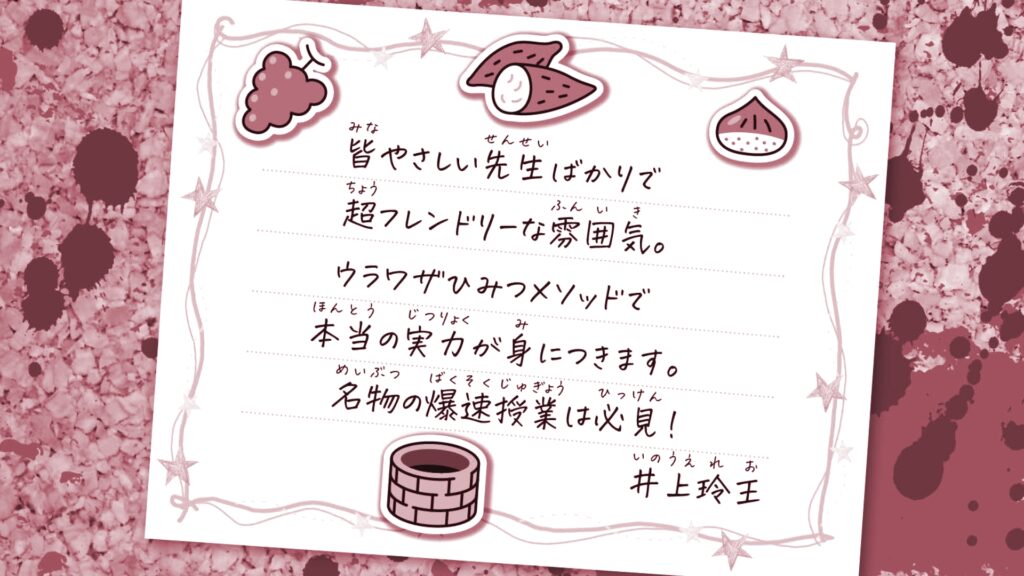 みな せんせい
皆やさしい先生ばかりで
ちょう ふんいき
超フレンドリーな雰囲気。
ウラワザひみつメソッドで
ほんとう じつりょく み
本当の実力が身につきます。
めいぶつ ばくそくじゅぎょう ひっけん
名物の爆速授業は必見！
いのうえ れお
井上玲王